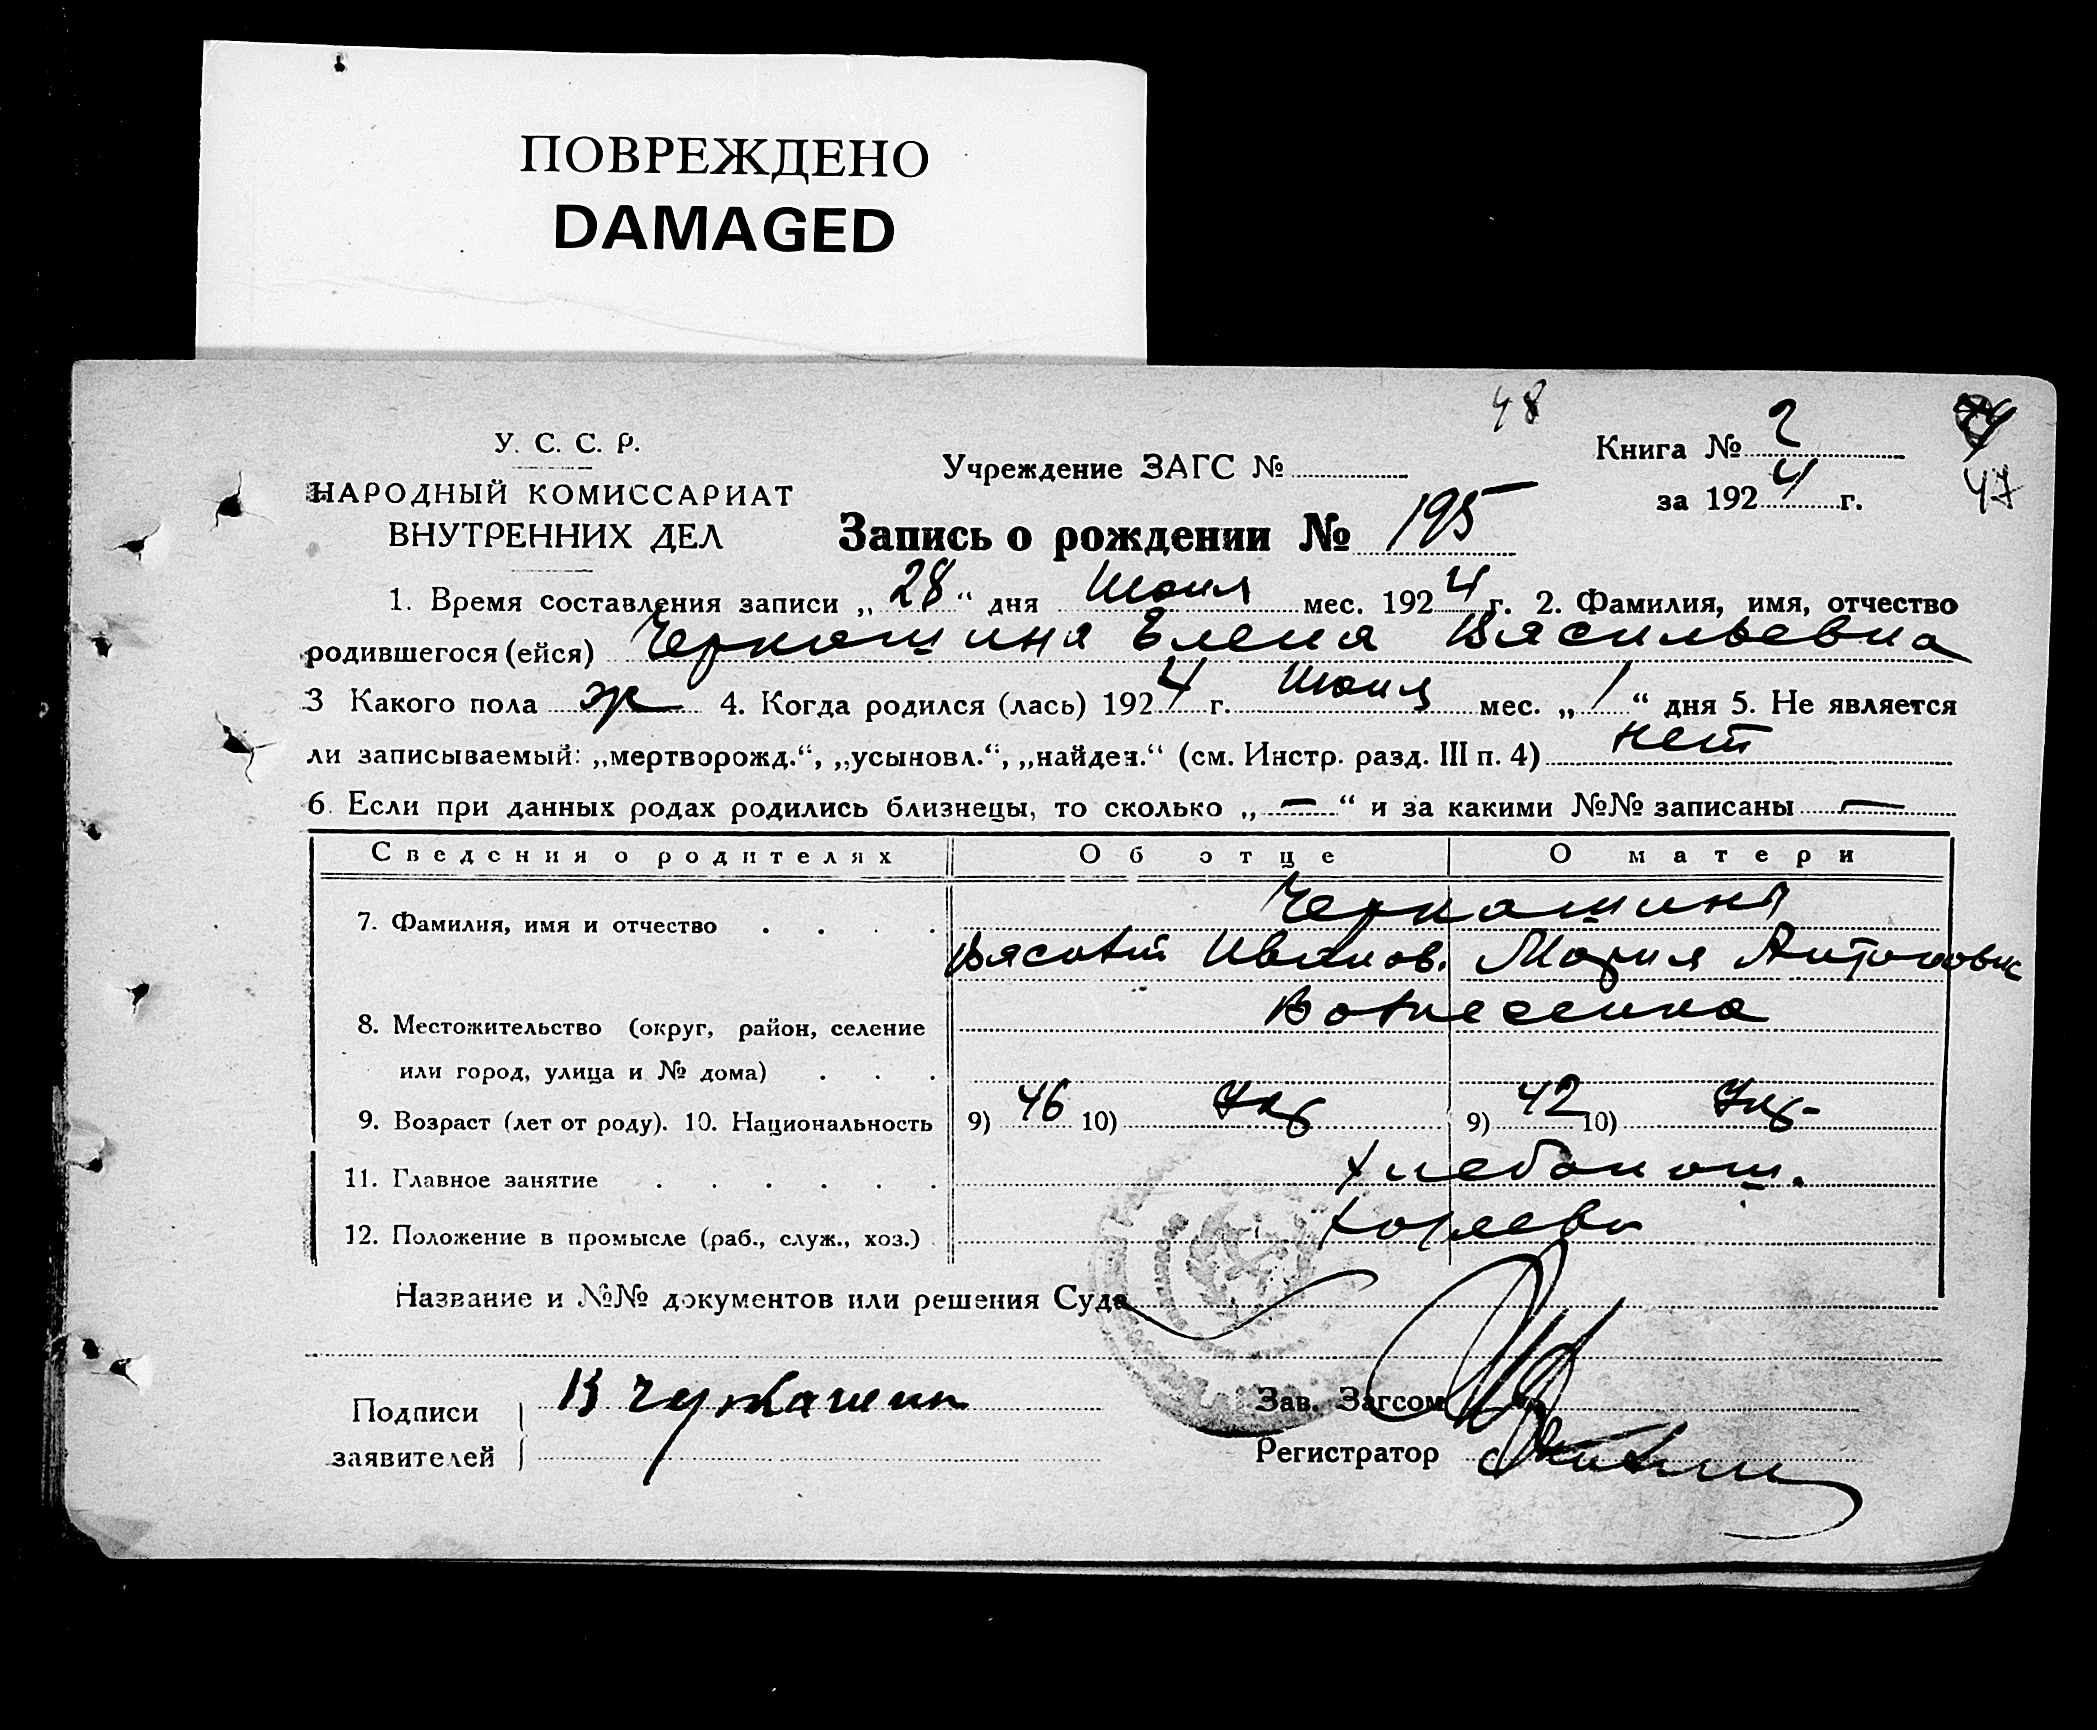 ПОВРЕЖДЕНО
DAMAGED
48
У. С. С. Р.
НАРОДНЫЙ КОМИССАРИАТ
ВНУТРЕННИХ ДЕЛ
Учреждение ЗАГС №
Книга № 2
за 1924 г.
47
Запись о рождении № 195
1. Время составления записи „28“ дня Июля мес. 1924 г. 2. Фамилия, имя, отчество
родившегося (ейся) Черкашина Елена Васильевна
3 Какого пола ж 4. Когда родился (лась) 1924 г. Июля мес. „1“ дня 5. Не является
ли записываемый: „мертворожд.“, „усыновл.“, „найден.“ (см. Инстр. разд. III п. 4) нет
6. Если при данных родах родились близнецы, то сколько „—“ и за какими №№ записаны —
Сведения о родителях Об отце О матери
7. Фамилия, имя и отчество Черкашины
Василий Иванов. Мария Антоновна
8. Местожительство (округ, район, селение Вознесенка
или город, улица и № дома)
9. Возраст (лет от роду). 10. Национальность 9) 46 10) Укр 9) 42 10) Укр.
11. Главное занятие хлебопаш.
12. Положение в промысле (раб., служ., хоз.) хозяева
Название и №№ документов или решения Суда
Подписи В Черкашин
заявителей
Зав. Загсом
Регистратор